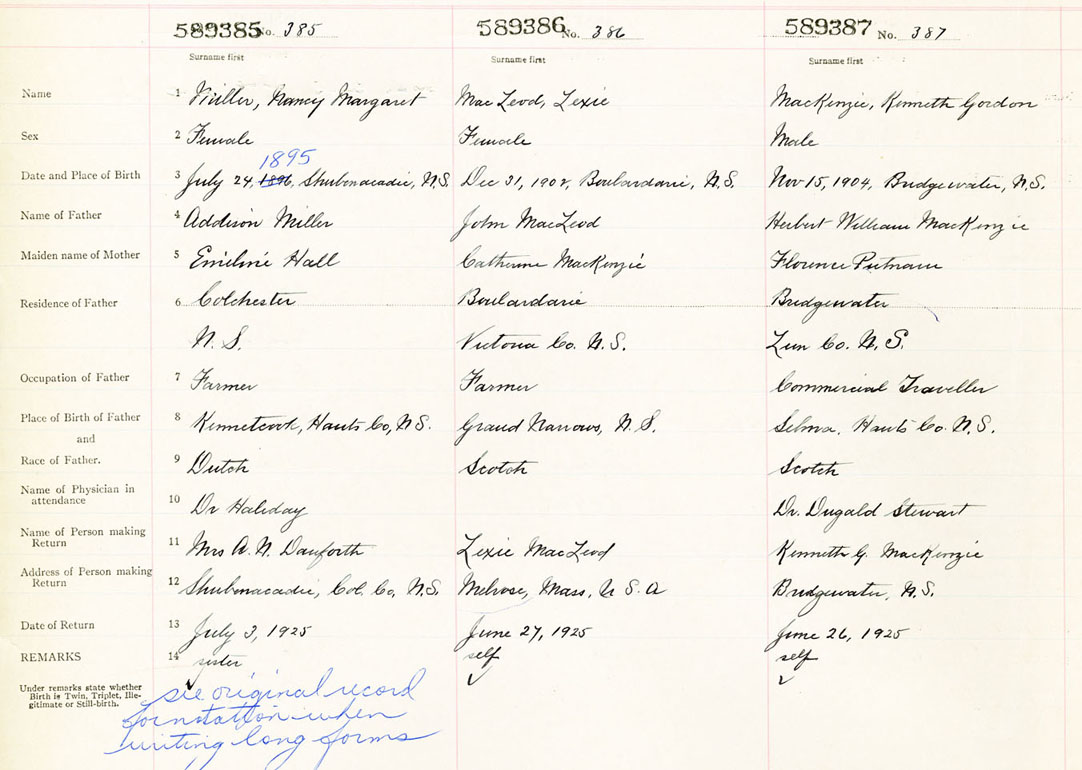 589385 No. 385 589386 No. 386 589387 No. 387
Surname first Surname first Surname first
Name 1 Miller, Nancy Margaret MacLeod, Lexie MacKenzie, Kenneth Gordon
Sex 2 Female Female Male
1895
Date and Place of Birth 3 July 24, 1896, Shubenacadie, N.S. Dec 31, 1902, Boulardarie, N.S. Nov 15, 1904, Bridgewater, N.S.
Name of Father 4 Addison Miller John MacLeod Herbert William MacKenzie
Maiden name of Mother 5 Emeline Hall Catherine MacKenzie Florence Putnam
Residence of Father 6 Colchester Boulardarie Bridgewater
N.S. Victoria Co. N.S. Lun Co. N.S.
Occupation of Father 7 Farmer Farmer Commercial Traveller
Place of Birth of Father 8 Kennetcook, Hants Co, N.S. Grand Narrows, N.S. Selma, Hants Co. N.S.
and
Race of Father. 9 Dutch Scotch Scotch
Name of Physician in
attendance 10 Dr Haliday Dr. Dugald Stewart
Name of Person making
Return 11 Mrs A. N. Danforth Lexie MacLeod Kenneth G. MacKenzie
Address of Person making
Return 12 Shubenacadie, Col. Co, N.S. Melrose, Mass, U S. A Bridgewater, N.S.
Date of Return 13 July 3, 1925 June 27, 1925 June 26, 1925
REMARKS 14 sister self self
Under remarks state whether
Birth is Twin, Triplet, Ille-
gitimate or Still-birth.
see original record
for notation when
writing long forms